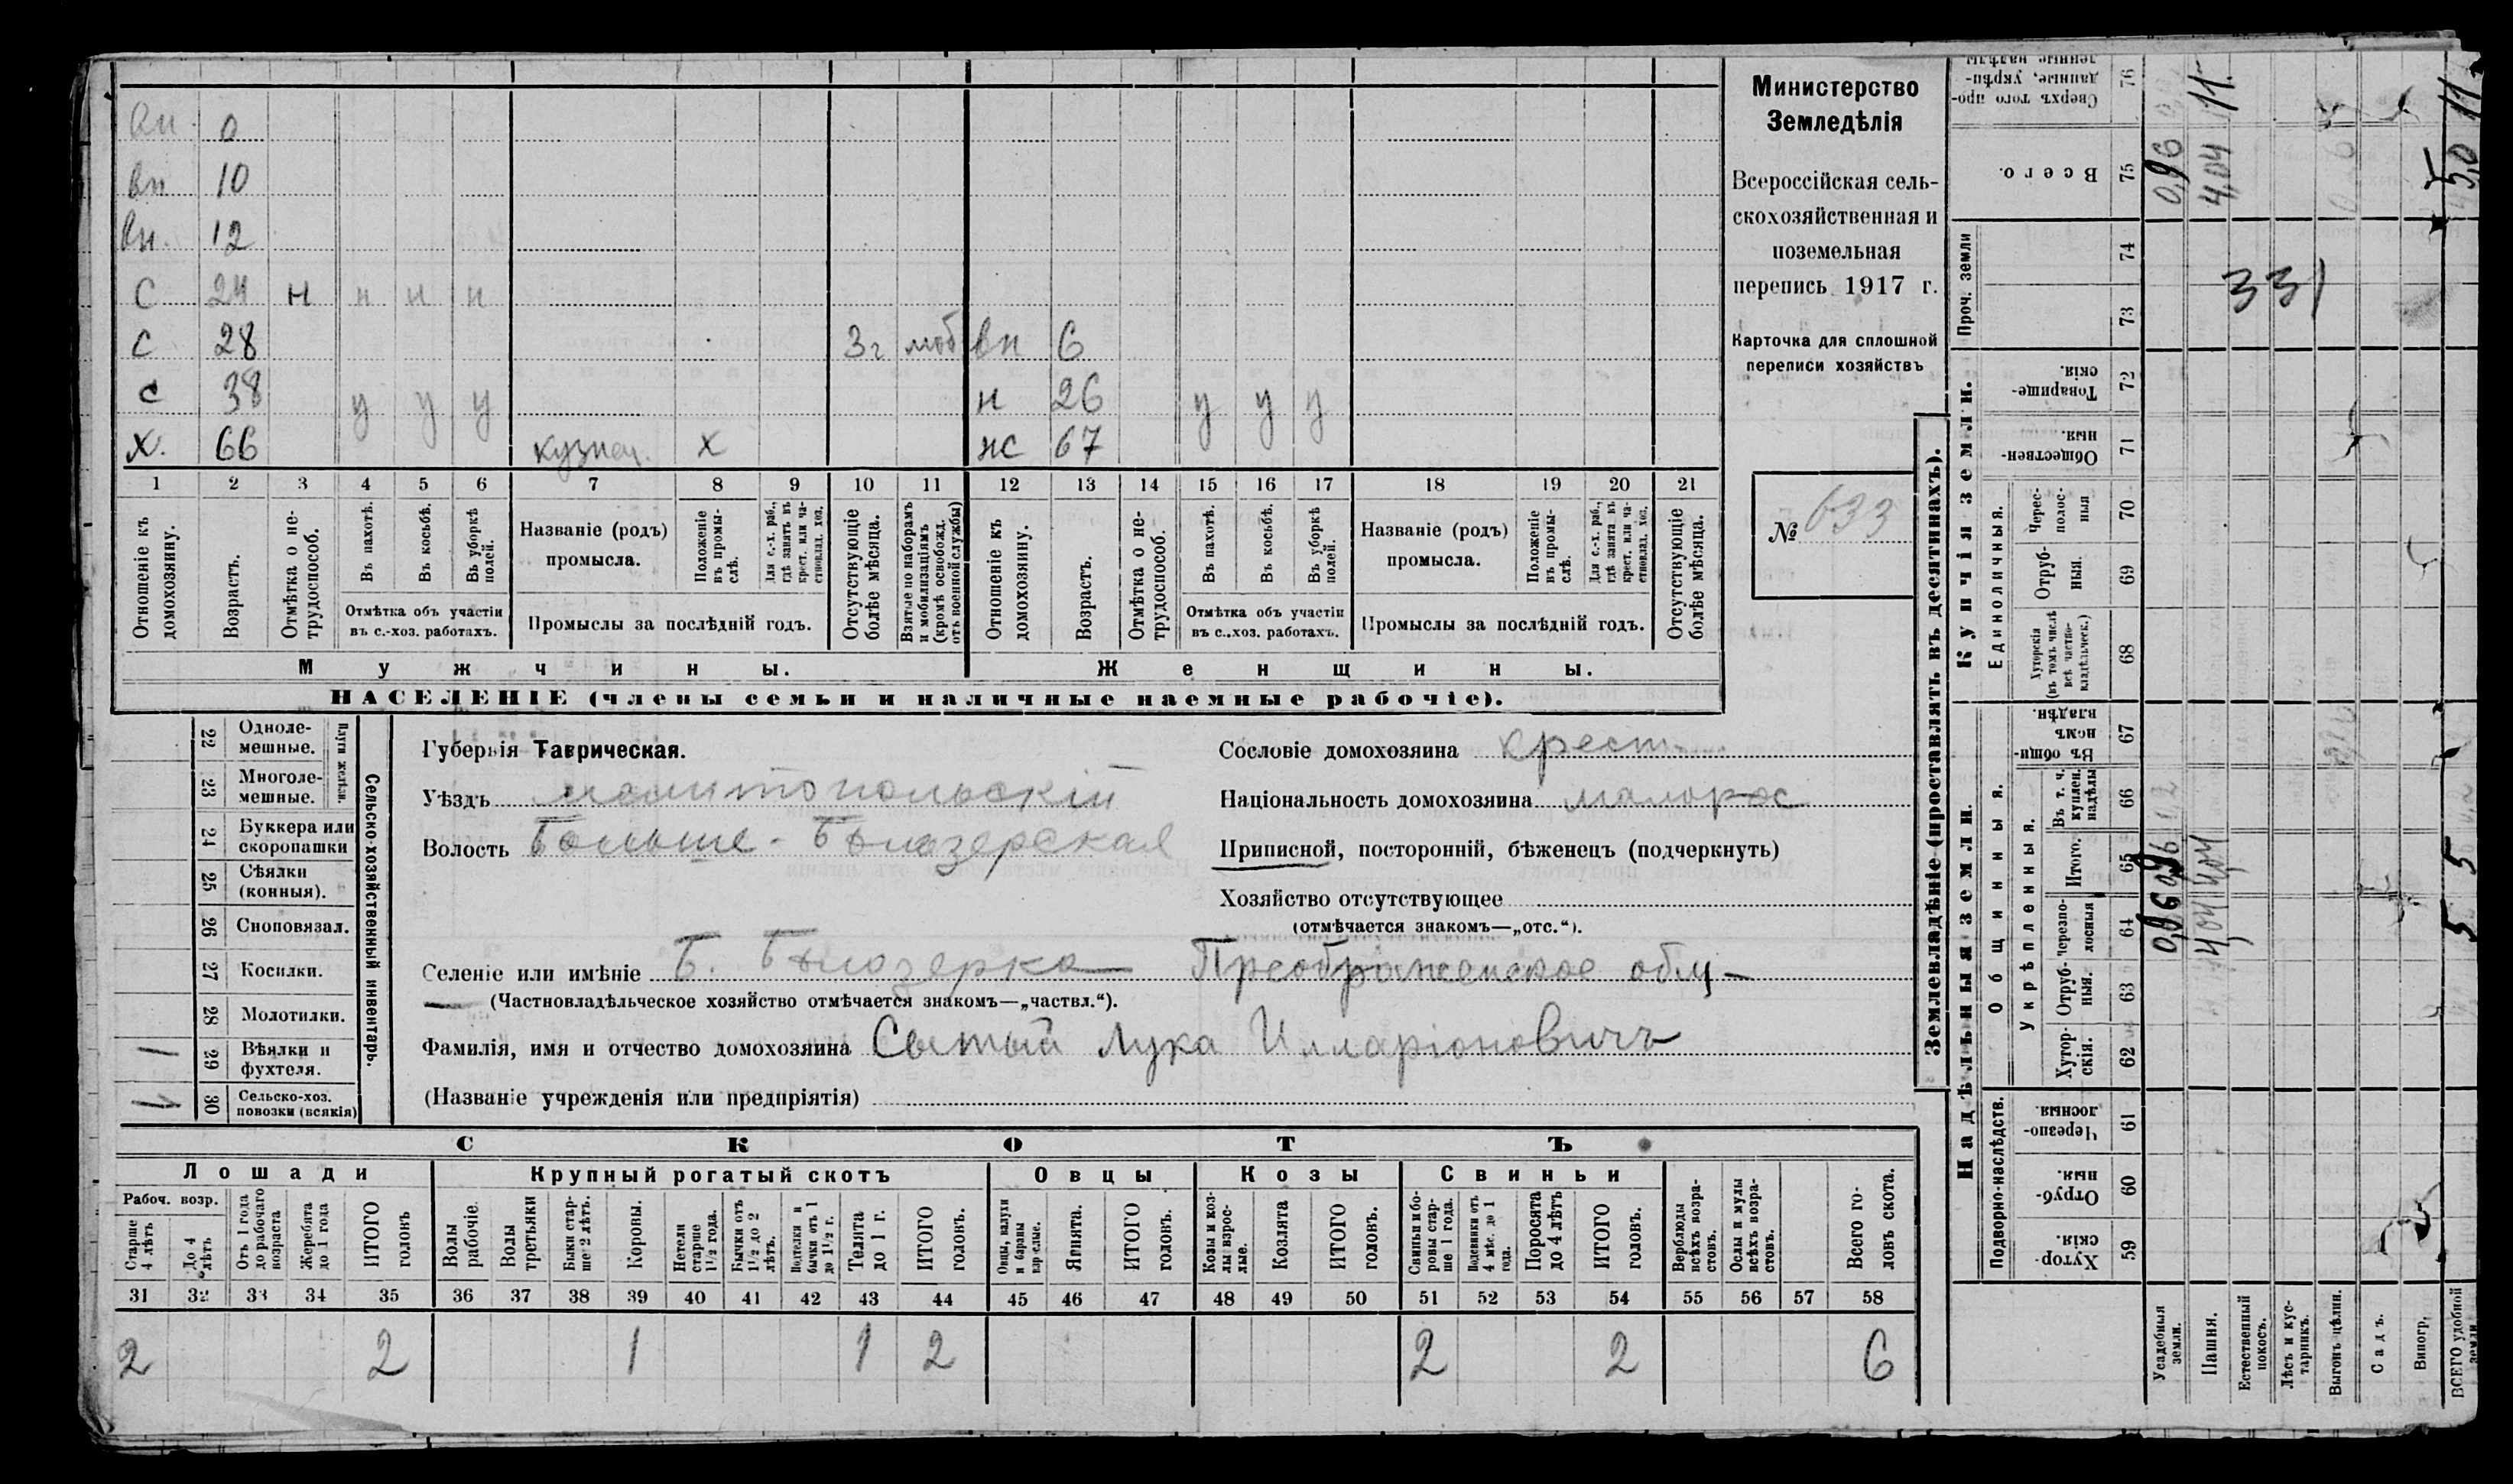 Министерство
Земледѣлія
Всероссійская сель-
скохозяйственная и
поземельная
перепись 1917 г.
Карточка для сплошной
переписи хозяйствъ
№ 633
вн. 0
вн 10
вн. 12
С 24 н н н н
С 28 3 г моб вн 6
с 38 у у у н 26 у у у
х. 66 кузнец. х нс 67
1 2 3 4 5 6 7 8 9 10 11 12 13 14 15 16 17 18 19 20 21
Отношеніе къ домохозяину.
Возрастъ.
Отмѣтка о не-трудоспособ.
Въ пахотѣ.
Въ косьбѣ.
Въ уборкѣ полей.
Отмѣтка объ участіи въ с.-хоз. работахъ.
Названіе (родъ) промысла.
Положеніе въ промы-слѣ.
Для с.-х. раб., гдѣ занятъ въ крест. или ча-стновлад. хоз.
Промыслы за послѣдній годъ.
Отсутствующіе болѣе мѣсяца.
Взятые по наборамъ и мобилизаціямъ (кромѣ освобожд. отъ военной службы)
Отношеніе къ домохозяину.
Возрастъ.
Отмѣтка о не-трудоспособ.
Въ пахотѣ.
Въ косьбѣ.
Въ уборкѣ полей.
Отмѣтка объ участіи въ с.-хоз. работахъ.
Названіе (родъ) промысла.
Положеніе въ промы-слѣ.
Для с.-х. раб., гдѣ занятъ въ крест. или ча-стновлад. хоз.
Промыслы за послѣдній годъ.
Отсутствующіе болѣе мѣсяца.
Мужчины. Женщины.
НАСЕЛЕНІЕ (члены семьи и наличные наемные рабочіе).
Сельско-хозяйственный инвентарь.
Плуги желѣзн.
22 Одноле-мешные.
23 Многоле-мешные.
24 Буккера или скоропашки
25 Сѣялки (конныя).
26 Сноповязал.
27 Косилки.
28 Молотилки.
1 29 Вѣялки и фухтеля.
30 Сельско-хоз. повозки (всякія)
Губернія Таврическая.
Уѣздъ мелитопольскій
Волость Больше-Бѣлозерская
Сословіе домохозяина крест.
Національность домохозяина малорос
Приписной, посторонній, бѣженецъ (подчеркнуть)
Хозяйство отсутствующее
(отмѣчается знакомъ—„отс.“).
Селеніе или имѣніе Б. Бѣлозерка Преображенское общ
(Частновладѣльческое хозяйство отмѣчается знакомъ—„частвл.“).
Фамилія, имя и отчество домохозяина Сытый Лука Илларіоновичъ
(Названіе учрежденія или предпріятія)
СКОТЪ
Лошади Крупный рогатый скотъ Овцы Козы Свиньи
Рабоч. возр.
Старше 4 лѣтъ
До 4 лѣтъ
Отъ 1 года до рабочаго возраста
Жеребята до 1 года
ИТОГО головъ
Волы рабочіе.
Волы третьяки
Быки стар-ше 2 лѣтъ.
Коровы.
Нетели старше 1½ года.
Бычки отъ 1½ до 2 лѣтъ.
бычки отъ 1 до 1½ г.
Телята до 1 г.
ИТОГО головъ.
Овцы, валухи и бараны взрослые.
Ягнята.
ИТОГО головъ.
Козы и коз-лы взрос-лые.
Козлята
ИТОГО головъ.
Свиньи и бо-ровы стар-ше 1 года.
Подсвинки отъ 4 мѣс. до 1 года.
Поросята до 4 лѣтъ
ИТОГО головъ.
Верблюды всѣхъ возра-стовъ.
Ослы и мулы всѣхъ возра-стовъ.
Всего го-ловъ скота.
31 32 33 34 35 36 37 38 39 40 41 42 43 44 45 46 47 48 49 50 51 52 53 54 55 56 57 58
2 2 1 1 2 2 2 6
Землевладѣніе (проставлять въ десятинахъ).
Надѣльныя земли. Купчія земли. Проч. земли
Подворно-наслѣдств. Общинныя. Укрѣпленныя. Единоличныя.
59 Хутор-скія.
60 Отруб-ныя.
61 Черезпо-лосныя.
62 Хутор-скія.
63 Отруб-ныя.
64 Черезпо-лосныя
65 Итого.
66 Въ т. ч. куплен. надѣлы
67 Въ общи-номъ владѣн.
68 Хуторскія (въ томъ числѣ всѣ частно-владѣльческ.)
69 Отруб-ныя.
70 Черес-полос-ныя
71 Обществен-ныя.
72 Товарище-скія.
73
74
75 Всего.
76 Сверхъ того про-данные, укрѣп-ленные надѣлы
Усадебныя земли. 0,96 0,96 0,96
Пашня. 4,04 4,04 4,04 11
Естественный покосъ.
Лѣсъ и кус-тарникъ.
Выгонъ цѣлин.
Садъ.
Виногр.
ВСЕГО удобной земли 5 5 5,0 11
331